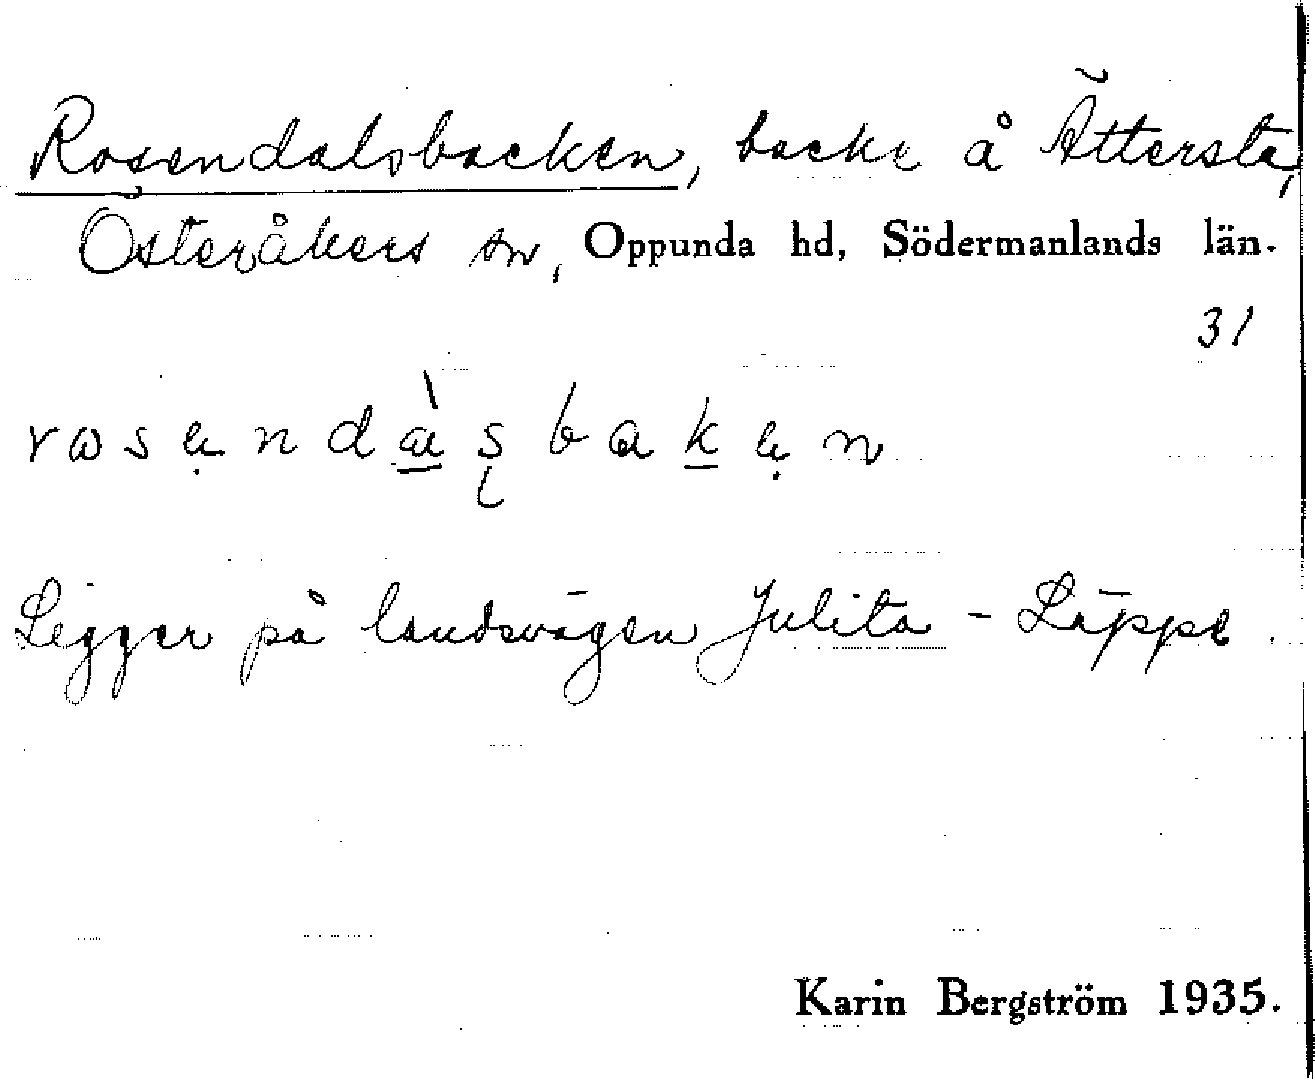 Rosendalsbacken, backe å Ättersta,
Österåkers sn, Oppunda hd, Södermanlands län.
31
rosendàsbaken
Ligger på landsvägen Julita - Läppe.
Karin Bergström 1935.